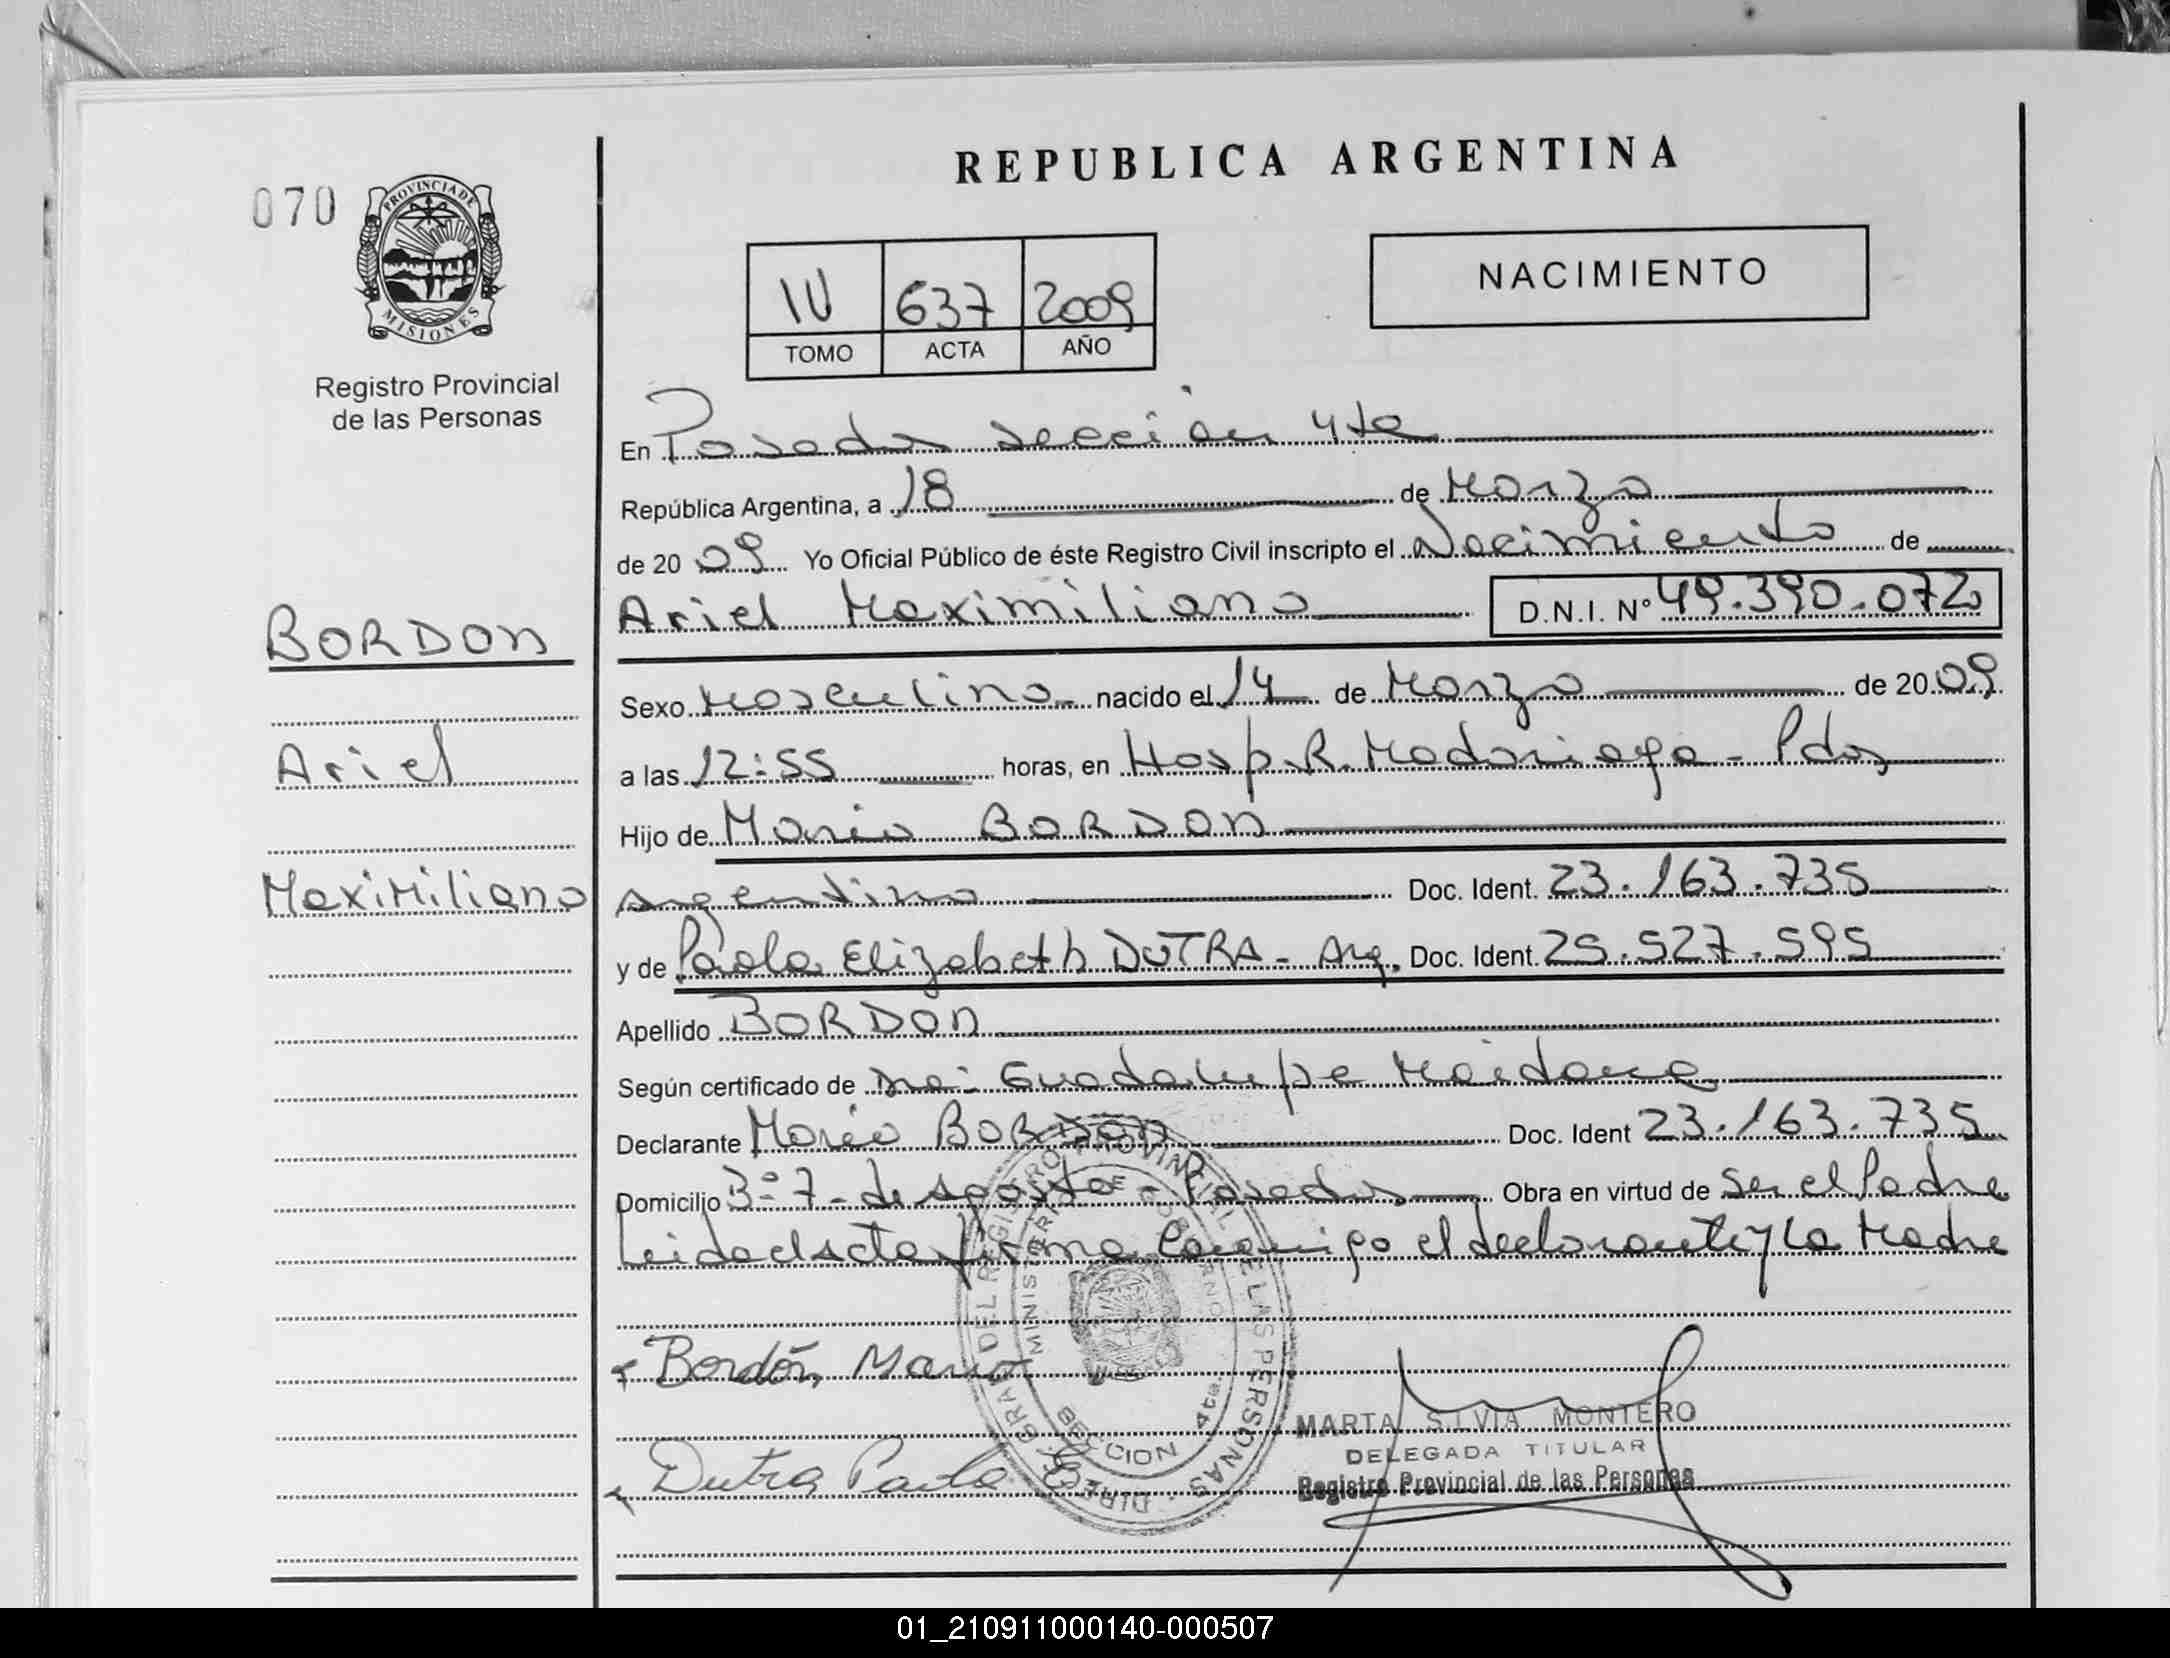 REPUBLICA ARGENTINA
070
PROVINCIA DE
MISIONES
Registro Provincial
de las Personas
IV 637 2009
TOMO ACTA AÑO
NACIMIENTO
En Posadas sección 4ta
República Argentina, a 18 de Marzo
de 2009 Yo Oficial Público de éste Registro Civil inscripto el Nacimiento de
Ariel Maximiliano D.N.I. Nº 49.390.072
BORDON
Ariel
Maximiliano
Sexo Masculino nacido el 14 de Marzo de 2009
a las 12:55 horas, en Hosp. R. Madariaga - Pdas
Hijo de Mario BORDON
Argentino Doc. Ident. 23.163.735
y de Paola Elizabeth DUTRA - Arg. Doc. Ident. 25.527.595
Apellido BORDON
Según certificado de Guadalupe Maidana
Declarante Mario BORDON Doc. Ident 23.163.735
Domicilio Bº 7 de Agosto - Posadas Obra en virtud de ser el Padre
Leida el acta firma conmigo el declarante y la Madre
Bordón, Mario
Dutra Paola E.
DIRECCION GRAL DEL REGISTRO PROVINCIAL DE LAS PERSONAS
MINISTERIO DE GOBIERNO
SECCION 4ta.
MARTA SILVIA MONTERO
DELEGADA TITULAR
Registro Provincial de las Personas
01_210911000140-000507